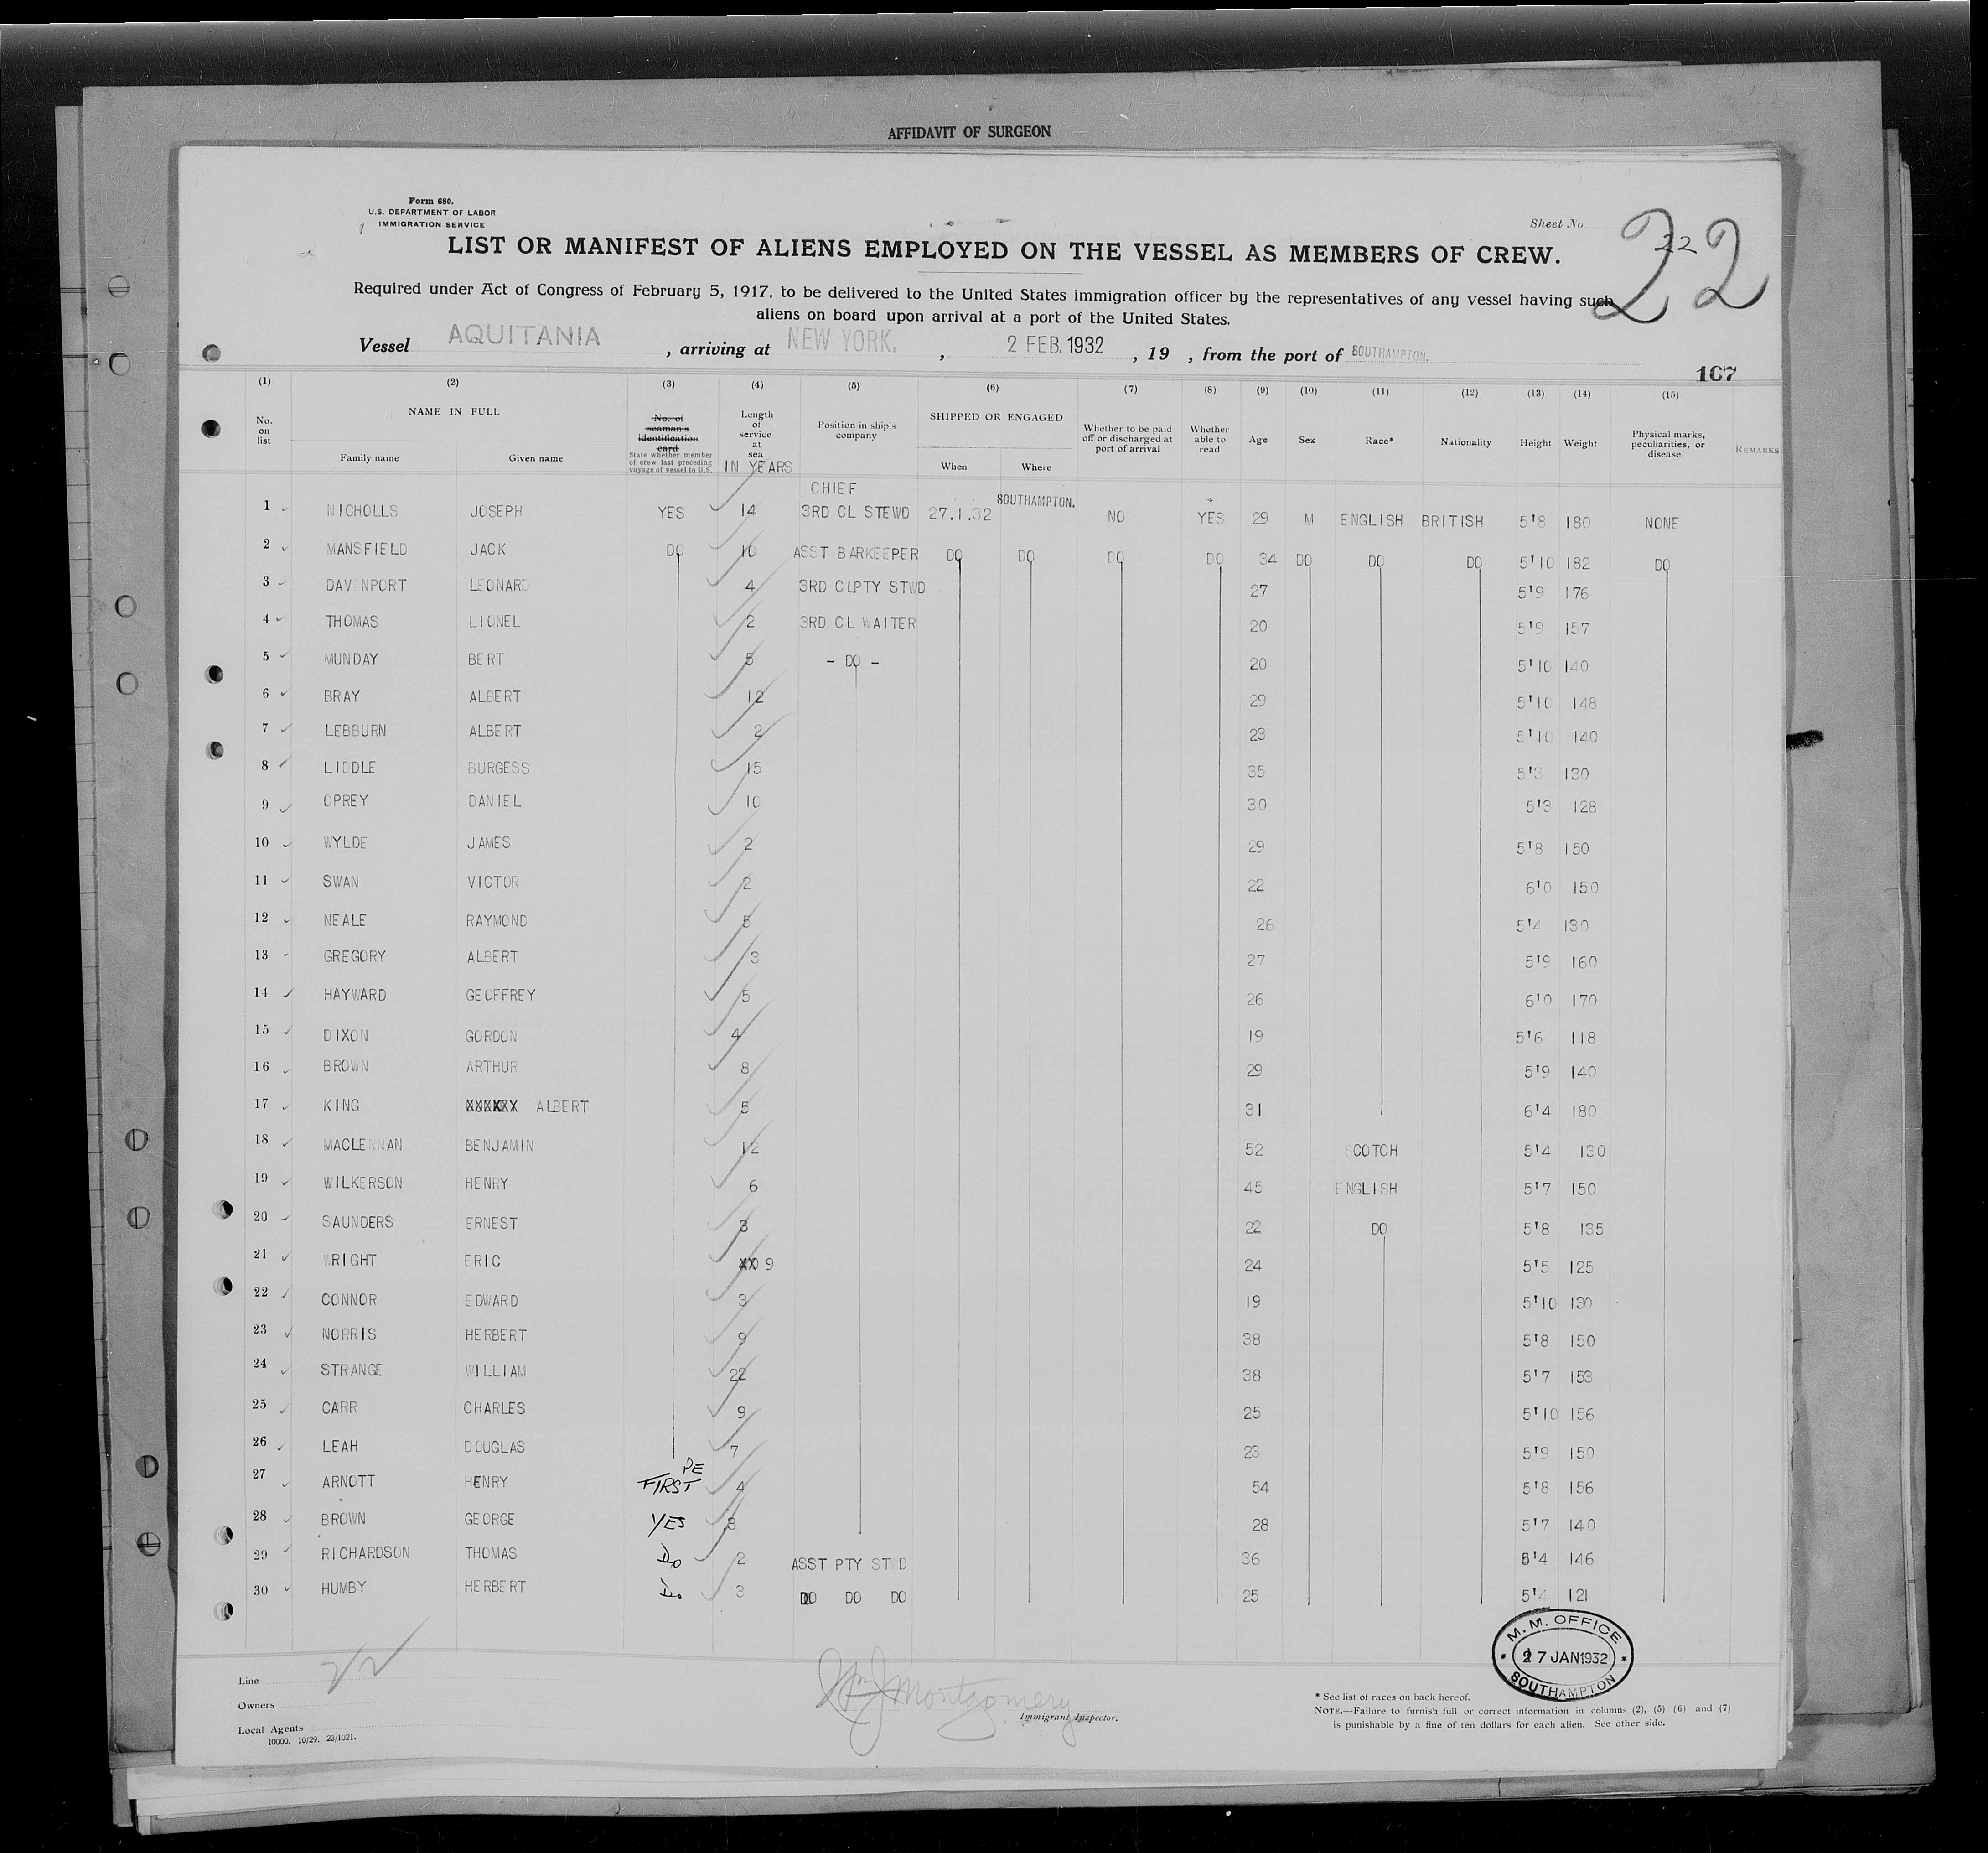 AFFIDAVIT OF SURGEON
Form 680.
U.S. DEPARTMENT OF LABOR
IMMIGRATION SERVICE
Sheet No 22
22
LIST OR MANIFEST OF ALIENS EMPLOYED ON THE VESSEL AS MEMBERS OF CREW.
Required under Act of Congress of February 5, 1917, to be delivered to the United States immigration officer by the representatives of any vessel having such
aliens on board upon arrival at a port of the United States.
Vessel AQUITANIA , arriving at NEW YORK. , 2 FEB. 1932 , 19 , from the port of SOUTHAMPTON.
167
(1) (2) (3) (4) (5) (6) (7) (8) (9) (10) (11) (12) (13) (14) (15)
No. on list NAME IN FULL Family name Given name No. of seaman's identification card State whether member of crew last preceding voyage of vessel to U.S. Length of service at sea IN YEARS Position in ship's company SHIPPED OR ENGAGED When Where Whether to be paid off or discharged at port of arrival Whether able to read Age Sex Race* Nationality Height Weight Physical marks, peculiarities, or disease REMARKS
CHIEF
1 NICHOLLS JOSEPH YES 14 3RD CL STEWD 27.1.32 SOUTHAMPTON. NO YES 29 M ENGLISH BRITISH 5'8 180 NONE
2 MANSFIELD JACK DO 10 ASST BARKEEPER DO DO DO DO 34 DO DO DO 5'10 182 DO
3 DAVENPORT LEONARD 4 3RD CLPTY STWD 27 5'9 176
4 THOMAS LIONEL 2 3RD CL WAITER 20 5'9 157
5 MUNDAY BERT 5 - DO - 20 5'10 140
6 BRAY ALBERT 12 29 5'10 148
7 LEBBURN ALBERT 2 23 5'10 140
8 LIDDLE BURGESS 15 35 5'3 130
9 OPREY DANIEL 10 30 5'3 128
10 WYLDE JAMES 2 29 5'8 150
11 SWAN VICTOR 2 22 6'0 150
12 NEALE RAYMOND 5 26 5'4 130
13 GREGORY ALBERT 3 27 5'9 160
14 HAYWARD GEOFFREY 5 26 6'0 170
15 DIXON GORDON 4 19 5'6 118
16 BROWN ARTHUR 8 29 5'9 140
17 KING ALBERT 5 31 6'4 180
18 MACLENNAN BENJAMIN 12 52 SCOTCH 5'4 130
19 WILKERSON HENRY 6 45 ENGLISH 5'7 150
20 SAUNDERS ERNEST 3 22 DO 5'8 135
21 WRIGHT ERIC 9 24 5'5 125
22 CONNOR EDWARD 3 19 5'10 130
23 NORRIS HERBERT 9 38 5'8 150
24 STRANGE WILLIAM 22 38 5'7 153
25 CARR CHARLES 9 25 5'10 156
26 LEAH DOUGLAS 7 23 5'9 150
PE
27 ARNOTT HENRY FIRST 4 54 5'8 156
28 BROWN GEORGE YES 8 28 5'7 140
29 RICHARDSON THOMAS Do 2 36 ASST PTY STWD 5'4 146
30 HUMBY HERBERT Do 3 DO DO DO 25 5'4 121
M. M. OFFICE
27 JAN 1932
SOUTHAMPTON
Line
Owners
Local Agents
10000. 10/29. 23/1021.
Wm J Montgomery
Immigrant Inspector.
* See list of races on back hereof.
NOTE.—Failure to furnish full or correct information in columns (2), (5) (6) and (7)
is punishable by a fine of ten dollars for each alien. See other side.